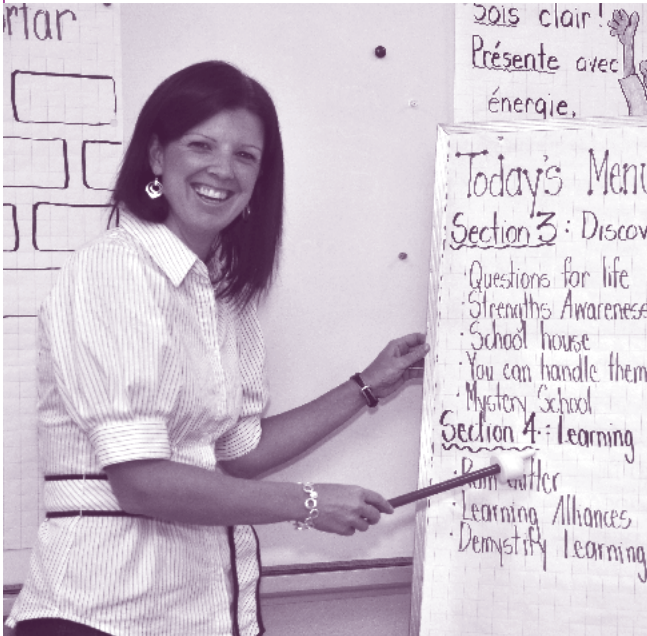 rtar
Sois clair!
Présente avec
énergie,
Today's Menu
Section 3: Discov
· Questions for life
· Strengths Awareness
· School house
· You can handle them
· Mystery School
Section 4: Learning
· Learning Alliances
· Demystify Learning